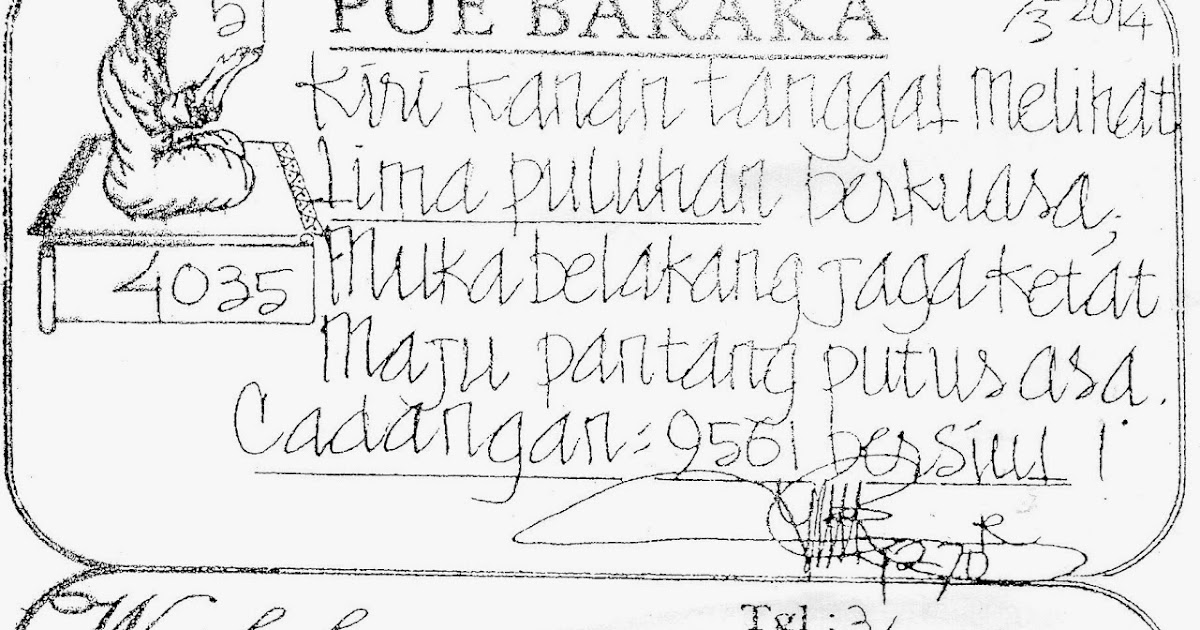 PUE BARAKA
/3 2014
Kiri kanan tanggal melihat
Lima puluhan berkuasa,
Muka belakang jaga ketat
Maju pantang putus asa.
4035
Cadangan: 9561 bersiul !
Tgl : 3